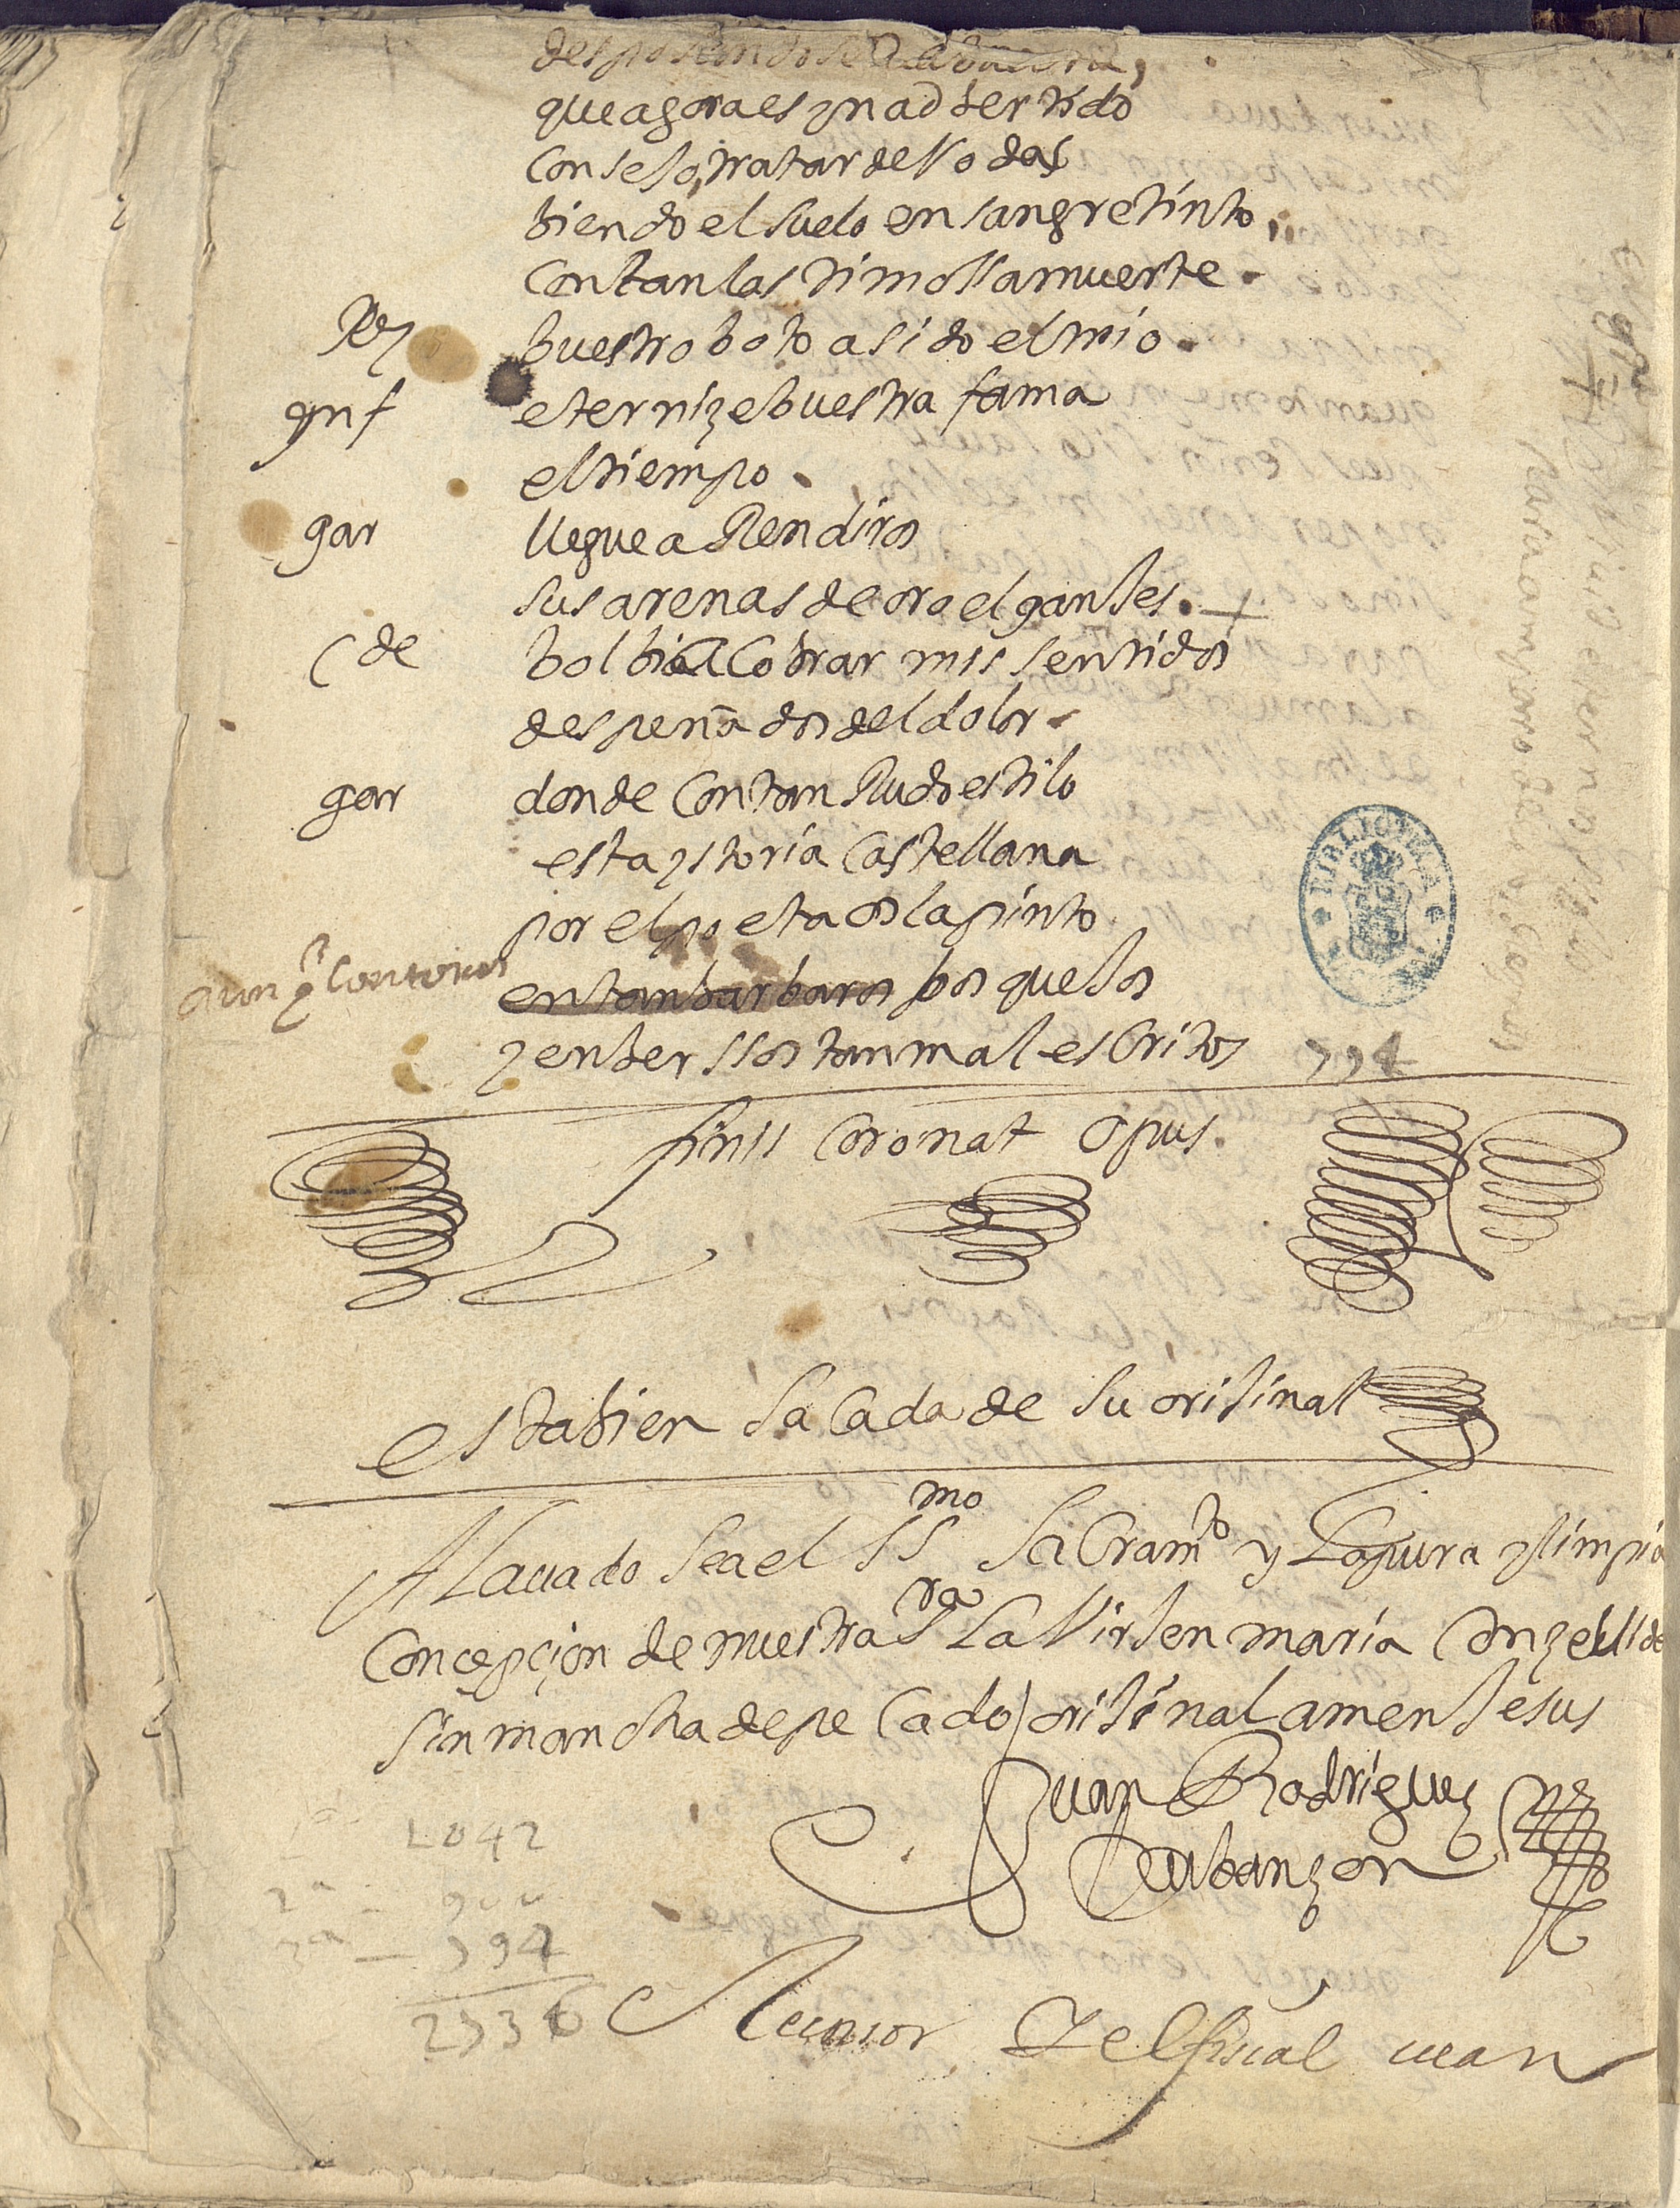 que agora es ynadbertido
consejo, tratar de bodas
biendo el suelo en sangre tinto,
con tan lastimossa muerte.
Rey buestro boto a sido el mio.
ynf eternize buestra fama
el tiempo.
gar llegue a Rendiros
sus arenas de oro el ganjes.
Cde bolbi a Cobrar mis sentidos
despeñados del dolor.
gar donde Con tan Rudo estilo
esta ystoria Castellana
por el poeta os la pinto
aunq̃ con toscos
en tan barbaros bosquejos
y en berssos tan mal escritos 794
finis Coronat Opus.
esta bien sacada de su orijinal
Alauado sea el SSmo Sacramto y La pura y limpia
Concepcion de nuestra Sra La Virjen maria Conzebida
sin mancha de pecado orijinal amen Jesus
Juan Rodriguez
1a 1042
2a - 900
3a - 794
2736
El censor y el fiscal vean
BIBLIOTECA